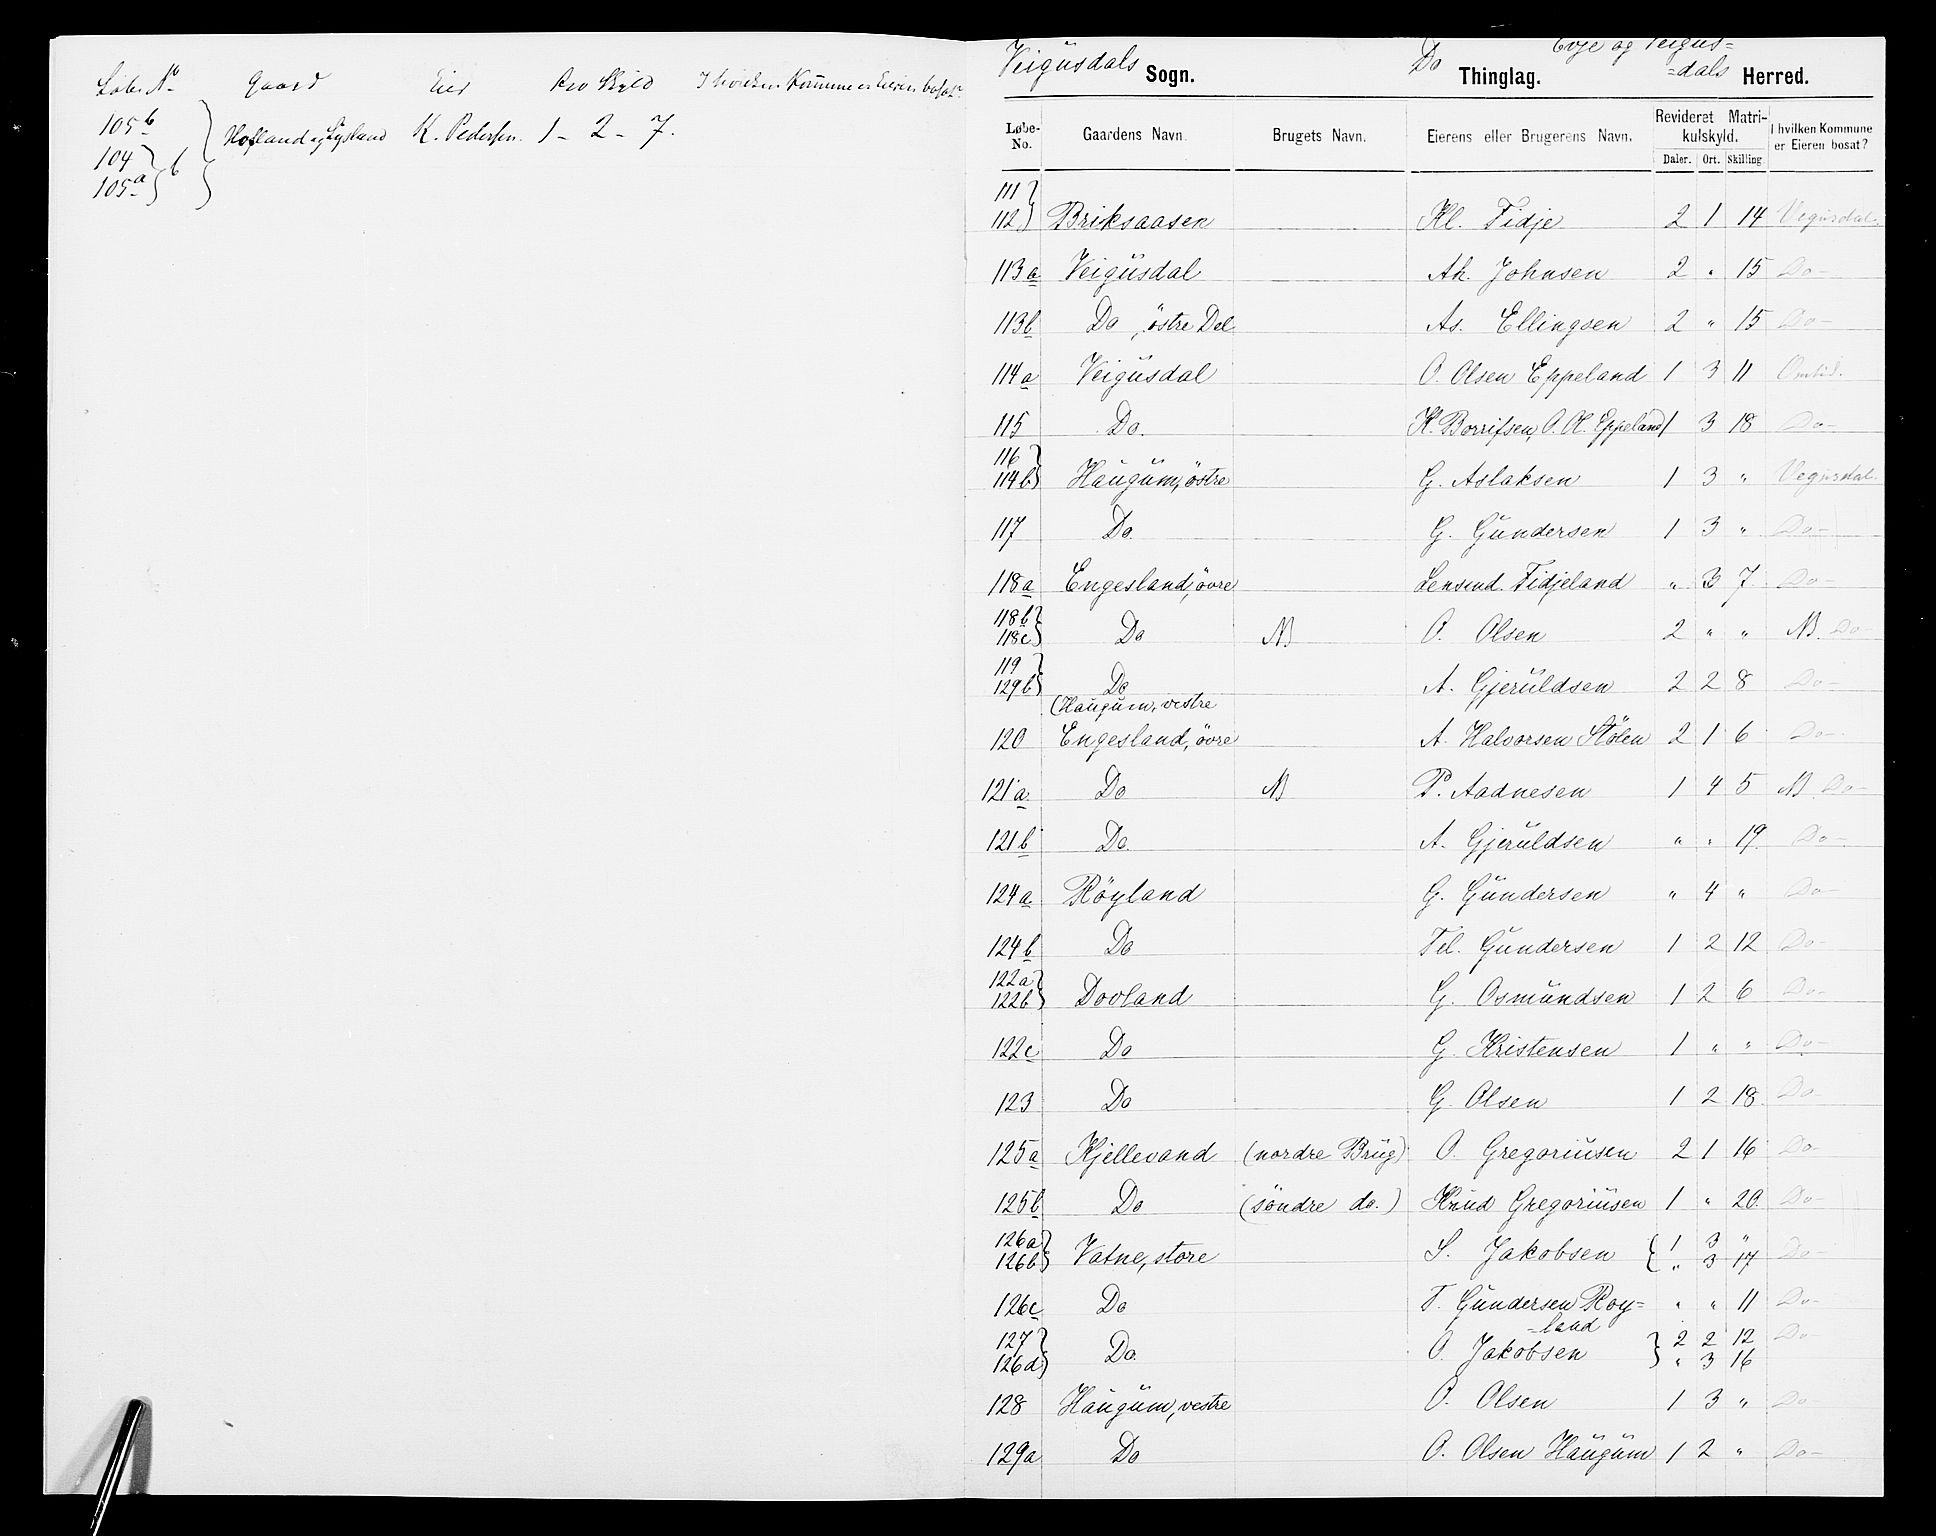 Løbe No Gaard Eier Rev Skyld I hvilken Kommune er Eieren bosat?
105b
104
105a b Hofland og Lysland K. Pedersen. 1 - 2 - 7.
Veigusdals Sogn. Do Thinglag. Evje og Veigus=
=dals Herred.
Løbe-No. Gaardens Navn. Brugets Navn. Eierens eller Brugerens Navn. Revideret Matrikulskyld. Daler. Ort. Skilling. I hvilken Kommune er Eieren bosat?
111
112 Briksaasen Kl. Fidje 2 1 14 Vegusdal.
113a Veigusdal Ah. Johnsen 2 " 15 Do-
113b Do, östre Del As. Ellingsen 2 " 15 Do-
114a Veigusdal O. Olsen Eppeland 1 3 11 Omlid.
115 Do. K. Borrifsen, O. O. Eppeland 1 3 18 Do-
116
114b Haugum, östre G. Aslaksen 1 3 " Vegusdal.
117 Do. G. Gundersen 1 3 " Do-
118a Engesland, övre Lensmd. Fidjeland " 3 7 Do-
118b
118c Do NB O. Olsen 2 " " NB. Do-
119
129b Do A. Gjeruldsen 2 2 8 Do-
(Haugum, vestre
120 Engesland, övre A. Halvorsen Stölen 2 1 6 Do-
121a Do NB P. Aadnesen 1 4 5 NB Do-
121b Do. A. Gjeruldsen " " 19 Do-
124a Röyland G. Gundersen " 4 " Do-
124b Do Tel. Gundersen 1 2 12 Do-
122a
122b Dovland G. Osmundsen 1 2 6 Do-
122c Do G. Kristensen 1 " " Do-
123 Do G. Olsen 1 2 18 Do-
125a Kjellevand (nordre Brug) O. Gregoriusen 2 1 16 Do-
125b Do (söndre do.) Knud Gregoriusen 1 " 20 Do-
126a 1 3 "
126b Vatne, store S. Jakobsen " 3 17 Do-
126c Do T. Gundersen Roy= " " 11 Do-
=land
127 2 2 12 Do-
126d Do. O. Jakobsen " 3 16
128 Haugum, vestre O. Olsen 1 3 " Do
129a Do O. Olsen Haugum 1 2 " Do-